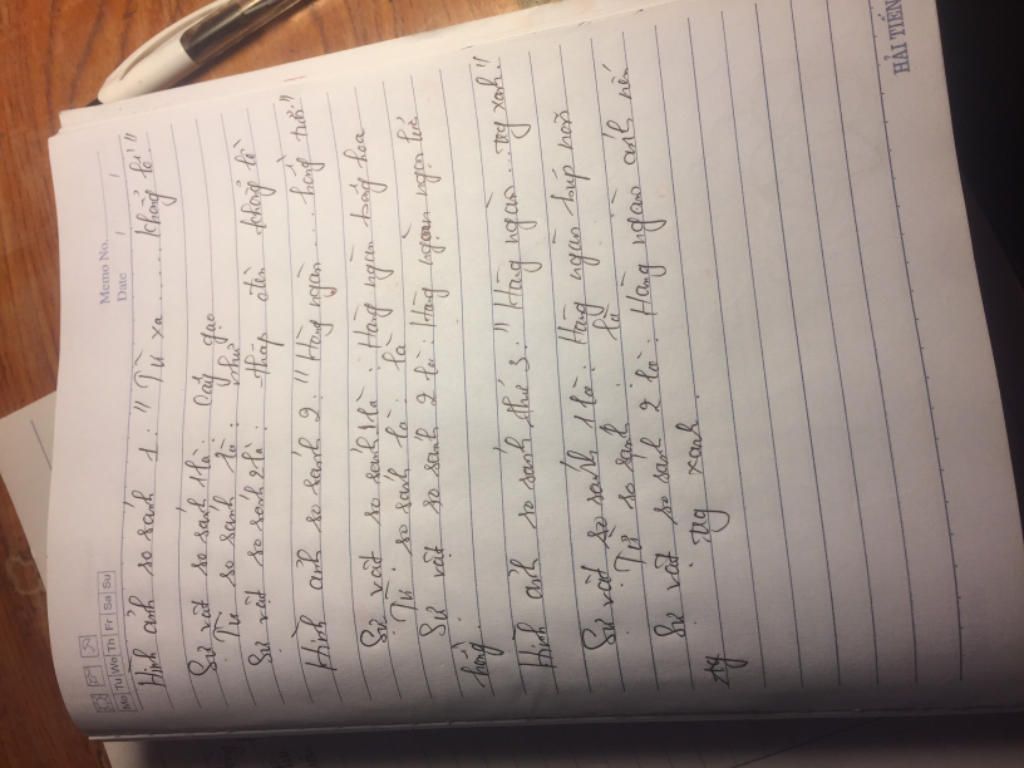 Memo No.
Date / /
Mo Tu Wo Th Fr Sa Su
Hình ảnh so sánh 1: "Từ xa ..... khổng lồ"
Sự vật so sánh 1 là: Cây gạo
Từ so sánh là: như
Sự vật so sánh 2 là: tháp đèn khổng lồ
Hình ảnh so sánh 2: "Hàng ngàn ... hồng tươi"
Sự vật so sánh 1 là: Hàng ngàn bông hoa
Từ so sánh là: là
Sự vật so sánh 2 là: Hàng ngàn ngọn lửa
hồng.
Hình ảnh so sánh thứ 3: "Hàng ngàn ... xanh"
Sự vật so sánh 1 là: Hàng ngàn búp nõn
Từ so sánh là: là
Sự vật so sánh 2 là: Hàng ngàn ánh nến
xanh
HẢI TIẾN